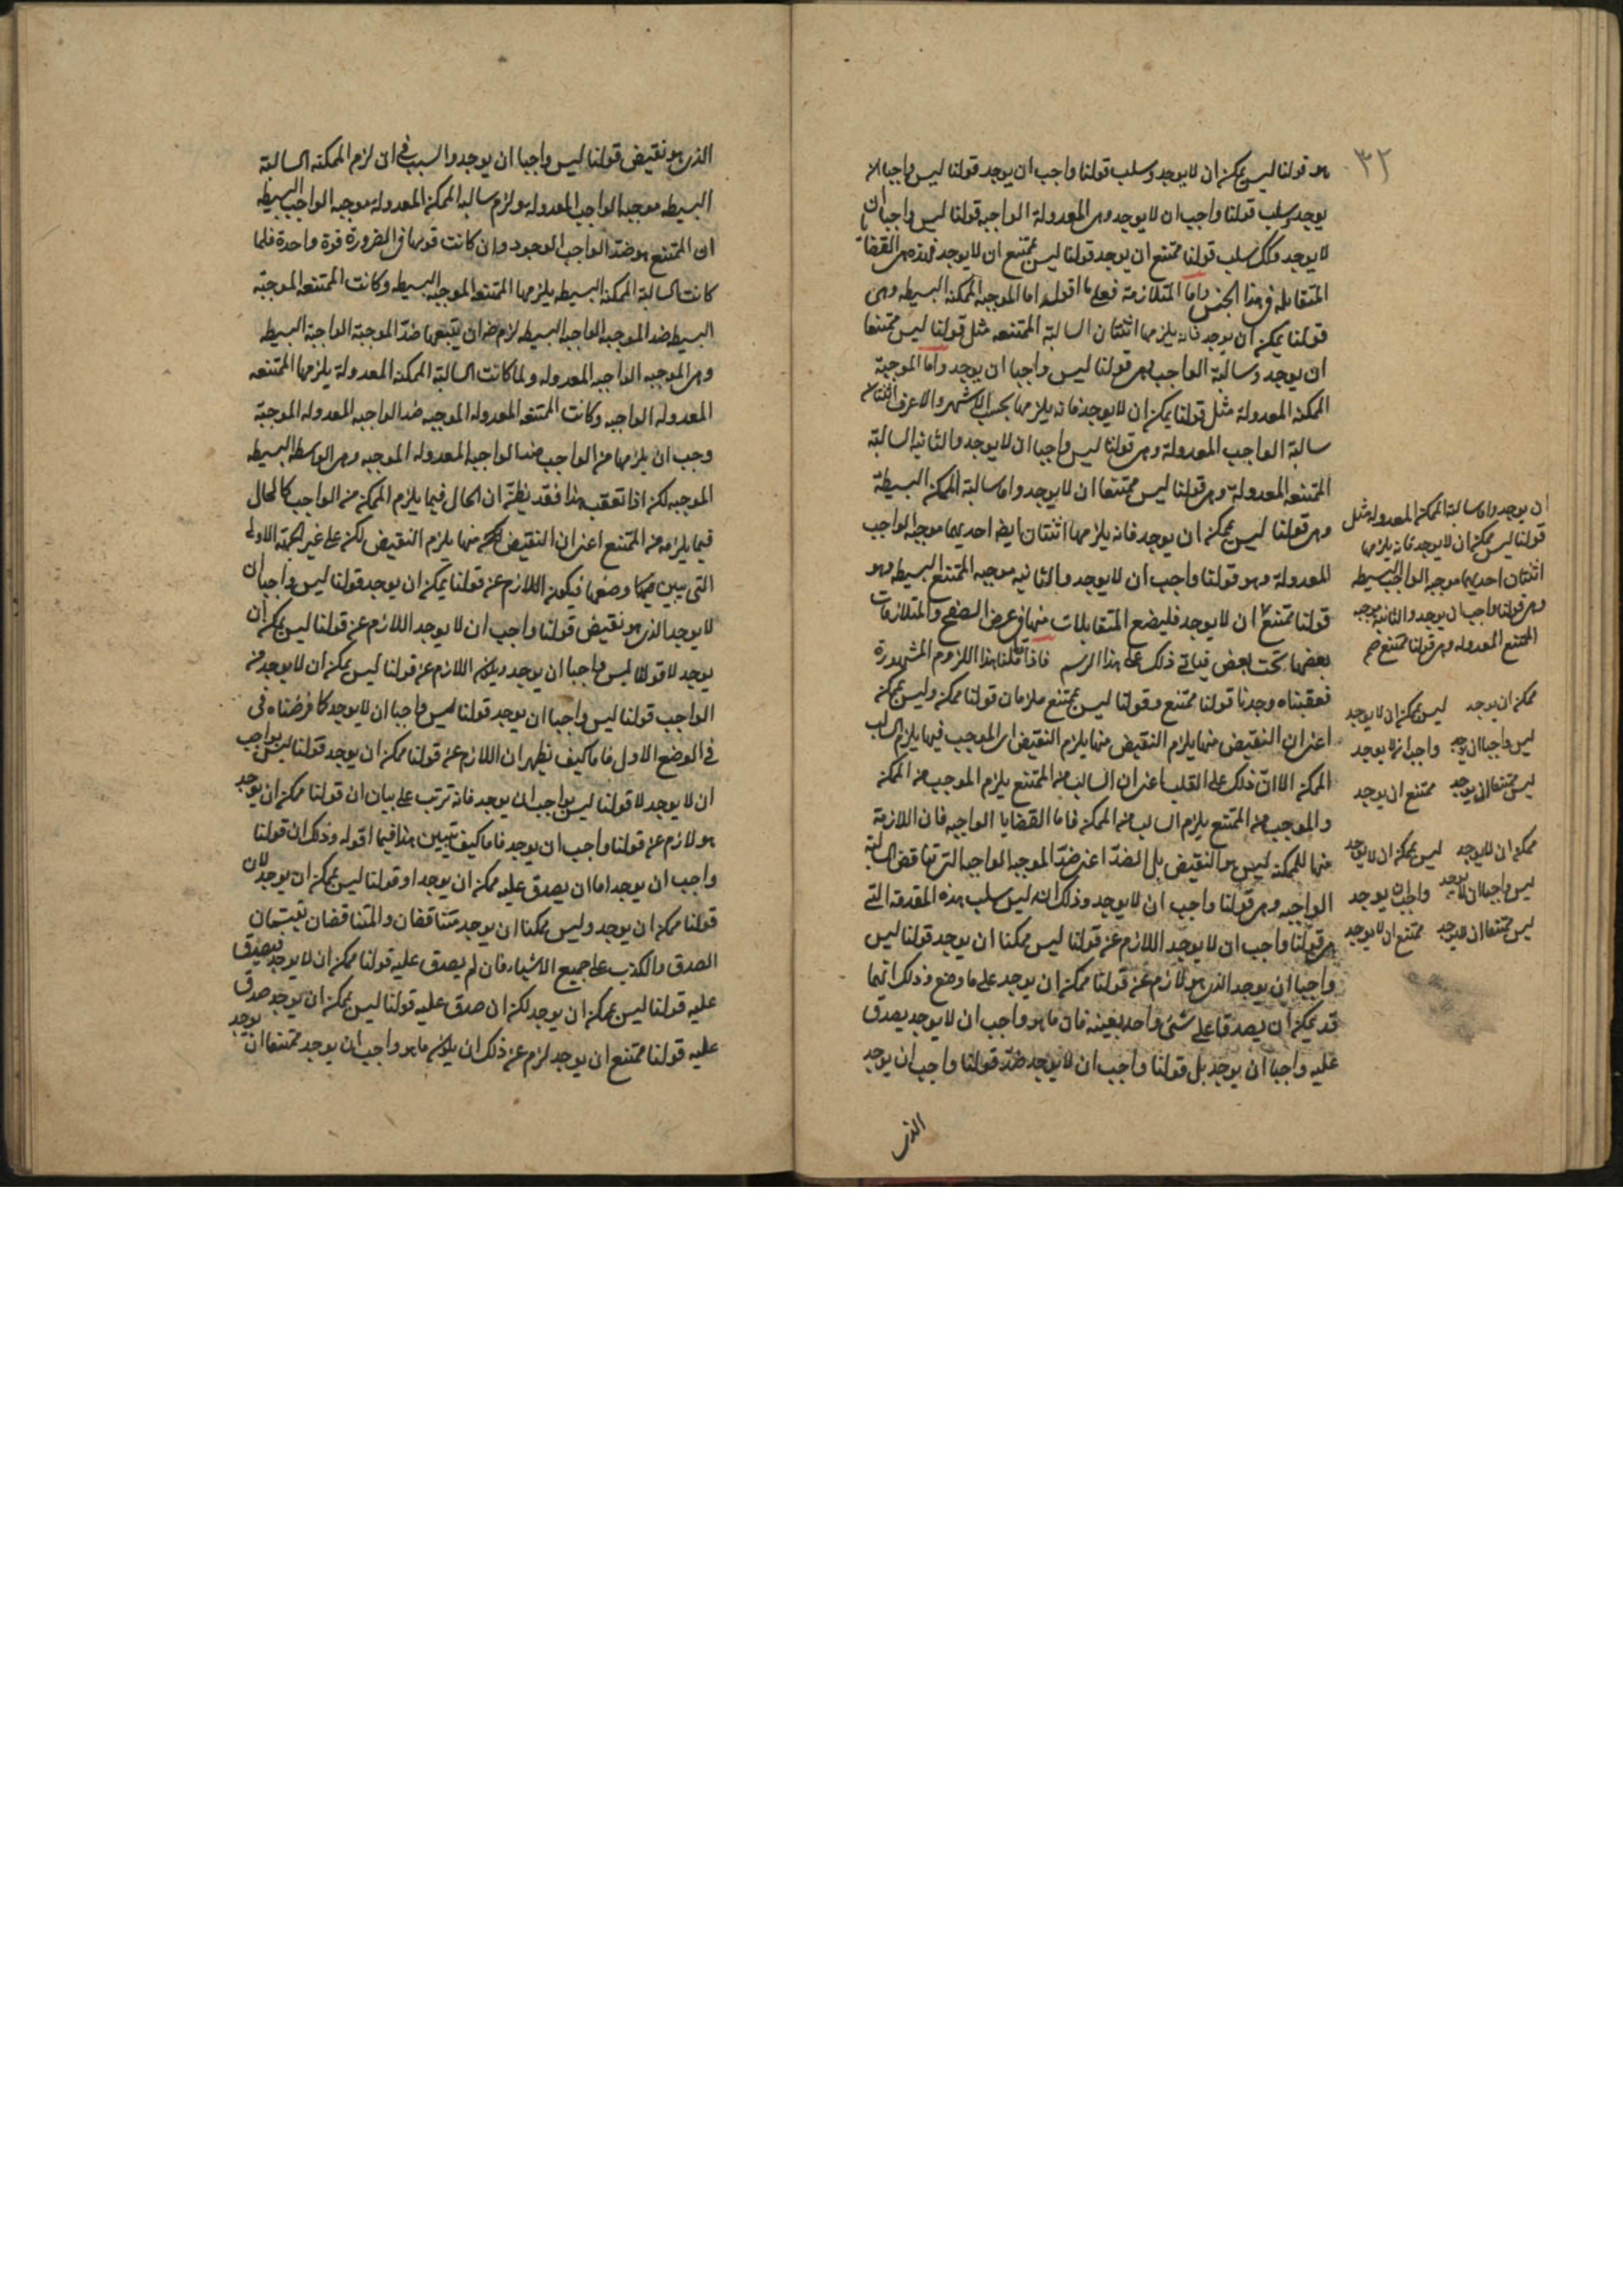 ٣٢
هو قولنا ليس يمكن ان لا يوجد وسلب قولنا واجب ان يوجد قولنا ليس واجبا ان
يوجد وسلب قولنا واجب ان لا يوجد وهى المعدولة الواجبه قولنا ليس واجبا ان
لا يوجد وكذلك سلب قولنا ممتنع ان يوجد قولنا ليس يمتنع ان لا يوجد فهذه هى القضايا
المتقابله فى هذا الجنس واما المتلازمة فعلى ما اقوله اما الموجبه الممكنه البسيطه وهى
قولنا يمكن ان يوجد فانه يلزمها اثنتان السالبة الممتنعه مثل قولنا ليس ممتنعا
ان يوجد وسالبة الواجب وهى قولنا ليس واجبا ان يوجد واما الموجبة
الممكنه المعدولة مثل قولنا يمكن ان لا يوجد فانه يلزمها بحسب الاشهر والاعرف اثنتان
سالبة الواجب المعدولة وهى قولنا ليس واجبا ان لا يوجد والثانيه السالبة
الممتنعه المعدولة وهى قولنا ليس ممتنعا ان لا يوجد واما سالبة الممكن البسيطة
وهى قولنا ليس يمكن ان يوجد فانه يلزمها اثنتان ايضا احديهما موجبه الواجب
المعدولة وهو قولنا واجب ان لا يوجد والثانيه موجبه الممتنع البسيطه وهو
قولنا ممتنع ان لا يوجد فليضع المتقابلات منها فى عرض الصفح والمتلازمات
بعضها تحت بعض فياتى ذلك على هذا الرسم فاذا تاملنا هذا اللزوم المشهورة
فعقبناه وجدنا قولنا ممتنع وقولنا ليس يمتنع ملزمان قولنا ممكن وليس يمكن
اعنى ان النقيض منها يلزم النقيض منها يلزم النقيض اى الموجب فيها يلزم السالب
الممكن الا ان ذلك على القلب اعنى ان السالب من الممتنع يلزم الموجب من الممكن
والموجب من الممتع يلزم السالب من الممكن فاما القضايا الواجبه فان اللازمة
منها للممكنه ليس هو النقيض بل الضد اعنى ضد الموجبه الواجبه التى تناقض السالبة
الواجبه وهى قولنا واجب ان لا يوجد وذلك انه ليس سلب هذه المقدمة التى
هى قولنا واجب ان لا يوجد اللازم عن قولنا ليس ممكنا ان يوجد قولنا ليس
واجبا ان يوجد الذى هو لازم عن قولنا ممكن ان يوجد على ما وضع وذلك انهما
قد يمكن ان يصدقا على شئ واحد بعينه فان ما هو واجب ان لا يوجد يصدق
عليه واجبا ان يوجد بل قولنا واجب ان لا يوجد ضد قولنا واجب ان يوجد
الذى
ان يوجد واما سالبة الممكن المعدوله مثل
قولنا ليس يمكن ان لا يوجد فانه يلزمها
اثنتان احديهما موجبه الواجب البسيطه
وهى قولنا واجب ان يوجد والثانيه موجبه
الممتنع المعدوله وهى قولنا ممتنع صح
ممكن ان يوجد ليس يمكن ان لا يوجد
ليس واجبا ان يوجد واجب ان لا يوجد
ليس ممتنعا ان يوجد ممتنع ان يوجد
ممكن ان لا يوجد ليس يمكن ان لا يوجد
ليس واجبا ان لا يوجد واجب ان يوجد
ليس ممتنعا ان لا يوجد ممتنع ان لا يوجد
الذى هو نقيض قولنا ليس واجبا ان يوجد والسبب فى ان لزم الممكنه السالبة
البسيطه موجبه الواجب المعدوله هو لزم سالبه الممكن المعدولة موجبه الواجب البسيطه
ان الممتنع هو ضد الواجب الوجود وان كانت قوتها فى الضرورة قوة واحدة فلما
كانت السالبة الممكنه البسيطه يلزمها الممتنعه الموجبه البسيطه وكانت الممتنعه الموجبة
البسيطه ضد الموجبه الواجبه البسيطه لزم ضران يتبعها ضد الموجبة الواجبة البسيطه
وهى الموجبه الواجبه المعدوله ولما كانت السالبة الممكنه المعدولة يلزمها الممتنعه
المعدوله الواجبه وكانت الممتنعه المعدوله الموجبه ضد الواجبه المعدوله الموجبة
وجب ان يلزمها من الواجب ضد الواجبه المعدوله الموجبه وهى الواسطه البسيطه
الموجبه لكن اذا تعقب هذا فقد يظن ان الحال فيما يلزم الممكن من الواجب كالحال
فيما يلزمه من الممتنع اعنى ان النقيض منها يلزم النقيض لكن على غير الجهة الاولى
التى بين فيها وضعها فيكون اللازم عن قولنا يمكن ان يوجد قولنا ليس واجبا ان
لا يوجد الذى هو نقيض قولنا واجب ان لا يوجد اللازم عن قولنا ليس يمكن ان
يوجد لا قولنا ليس واجبا ان يوجد ويكون اللازم عن قولنا ليس يمكن ان لا يوجد من
الواجب قولنا ليس واجبا ان يوجد قولنا ليس واجبا ان لا يوجد كما فرضناه فى
فى الموضع الاول فاما كيف يظهر ان اللازم عن قولنا ممكن ان يوجد قولنا ليس بواجب
ان لا يوجد لا قولنا ليس بواجب ان يوجد فانه ترتب على بيان ان قولنا ممكن ان يوجد
هو لازم عن قولنا واجب ان يوجد فاما كيف تبين هذا فيما اقوله وذلك ان قولنا
واجب ان يوجد اما ان يصدق عليه ممكن ان يوجد او قولنا ليس يمكن ان يوجد لان
قولنا ممكن ان يوجد وليس ممكنا ان يوجد متناقضان والمتناقضان يقتسمان
الصدق والكذب على جميع الاشياء فان لم يصدق عليه قولنا ممكن ان لا يوجد فيصدق
عليه قولنا ليس يمكن ان يوجد لكن ان صدق عليه قولنا ليس يمكن ان يوجد صدق
عليه قولنا ممتنع ان يوجد لزم عن ذلك ان يكون ما هو واجب ان يوجد ممتنعا ان يوجد